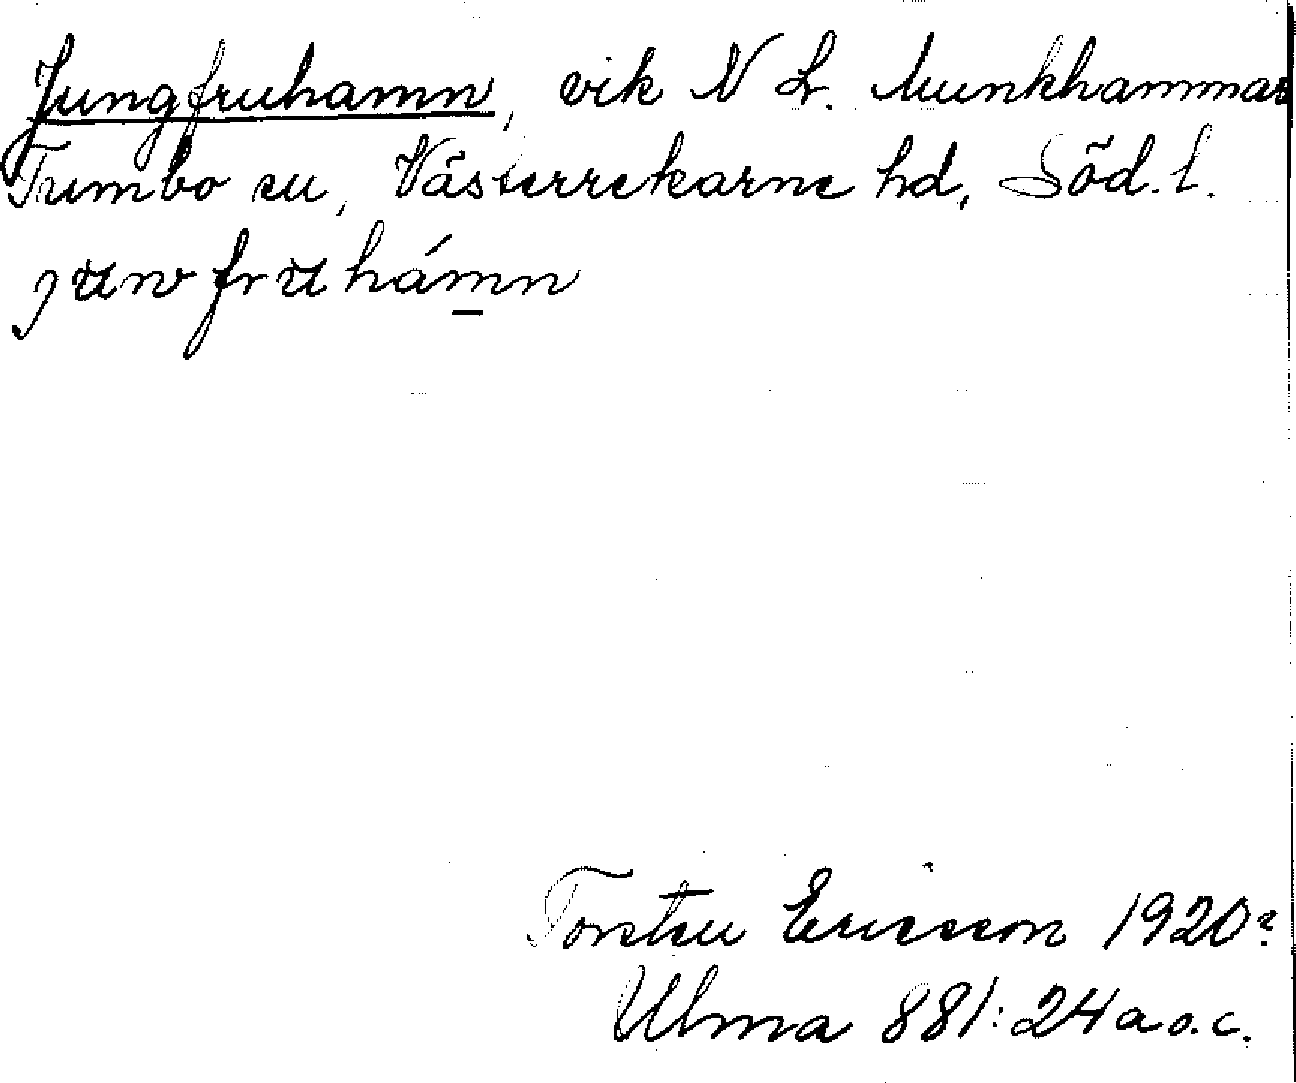 Jungfruhamn, vik N L. Munkhammar
Tumbo sn, Västerrekarne hd, Söd. l.
Torsten Ericsson 1920?
Ulma 881:24 a o. c.